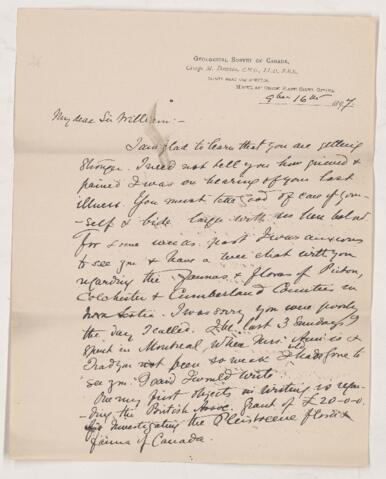 GEOLOGICAL SURVEY OF CANADA,
George M. Dawson, C.M.G., LL.D., F.R.S.
9ber 16th 1897
My dear Sir William:-
I am glad to learn that you are getting
stronger. I need not tell you how grieved &
pained I was on hearing of your last
illness. You must take good of care of your-
-self & bide larger with us here below
For some weeks past I was anxious
to see you & have a wee chat with you
regarding the Faunas & floras of Pictou,
Colchester & Cumberland Counties in
Nova Scotia. I was sorry you were poorly
the day I called. The last 3 Sundays I
spent in Montreal, where Mrs. Ami is &
Had you not been so weak I would have gone to
see you. I said I would write.
One my first objects in writing is regar-
ding the British Assoc. grant of £20-0-0
for investigating the Pleistocene flora &
fauna of Canada.